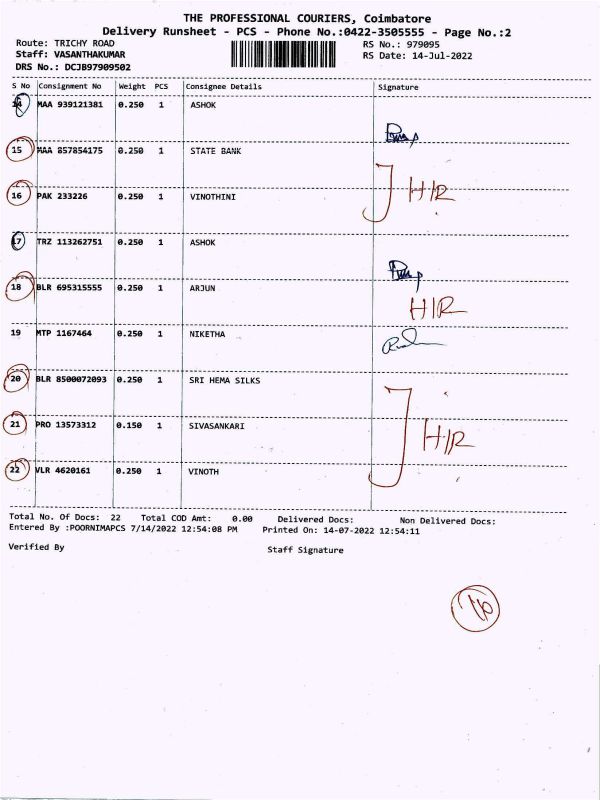 THE PROFESSIONAL COURIERS, Coimbatore
Delivery Runsheet - PCS - Phone No.:0422-3505555 - Page No.:2
Route: TRICHY ROAD RS No.: 979095
Staff: VASANTHAKUMAR RS Date: 14-Jul-2022
DRS No.: DCJB97909502
S No Consignment No Weight PCS Consignee Details Signature
14 MAA 939121381 0.250 1 ASHOK
15 MAA 857854175 0.250 1 STATE BANK
16 PAK 233226 0.250 1 VINOTHINI H/R
17 TRZ 113262751 0.250 1 ASHOK
18 BLR 695315555 0.250 1 ARJUN H/R
19 MTP 1167464 0.250 1 NIKETHA
20 BLR 8500072093 0.250 1 SRI HEMA SILKS
21 PRO 13573312 0.150 1 SIVASANKARI H/R
22 VLR 4620161 0.250 1 VINOTH
Total No. Of Docs: 22 Total COD Amt: 0.00 Delivered Docs: Non Delivered Docs:
Entered By :POORNIMAPCS 7/14/2022 12:54:08 PM Printed On: 14-07-2022 12:54:11
Verified By Staff Signature